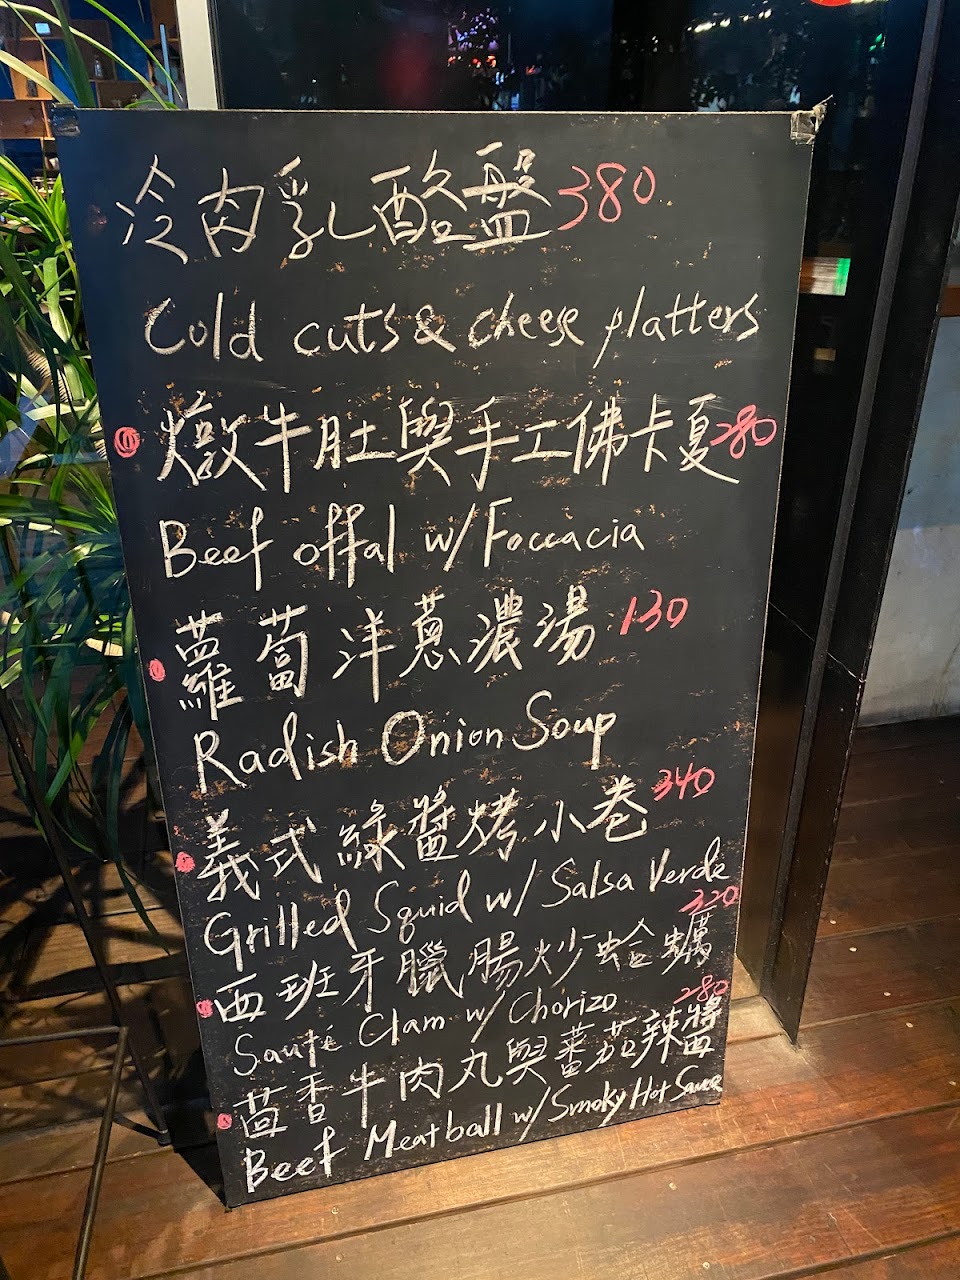 冷肉乳酪盤 380
Cold cuts & cheese platters
燉牛肚與手工佛卡夏 280
Beef offal w/ Foccacia
蘿蔔洋蔥濃湯 130
Radish Onion Soup
義式綠醬烤小卷 340
Grilled Squid w/ Salsa Verde
西班牙臘腸炒蛤蠣 320
Sauté Clam w/ Chorizo
茴香牛肉丸與蕃茄辣醬 280
Beef Meatball w/ Smoky Hot Sauce